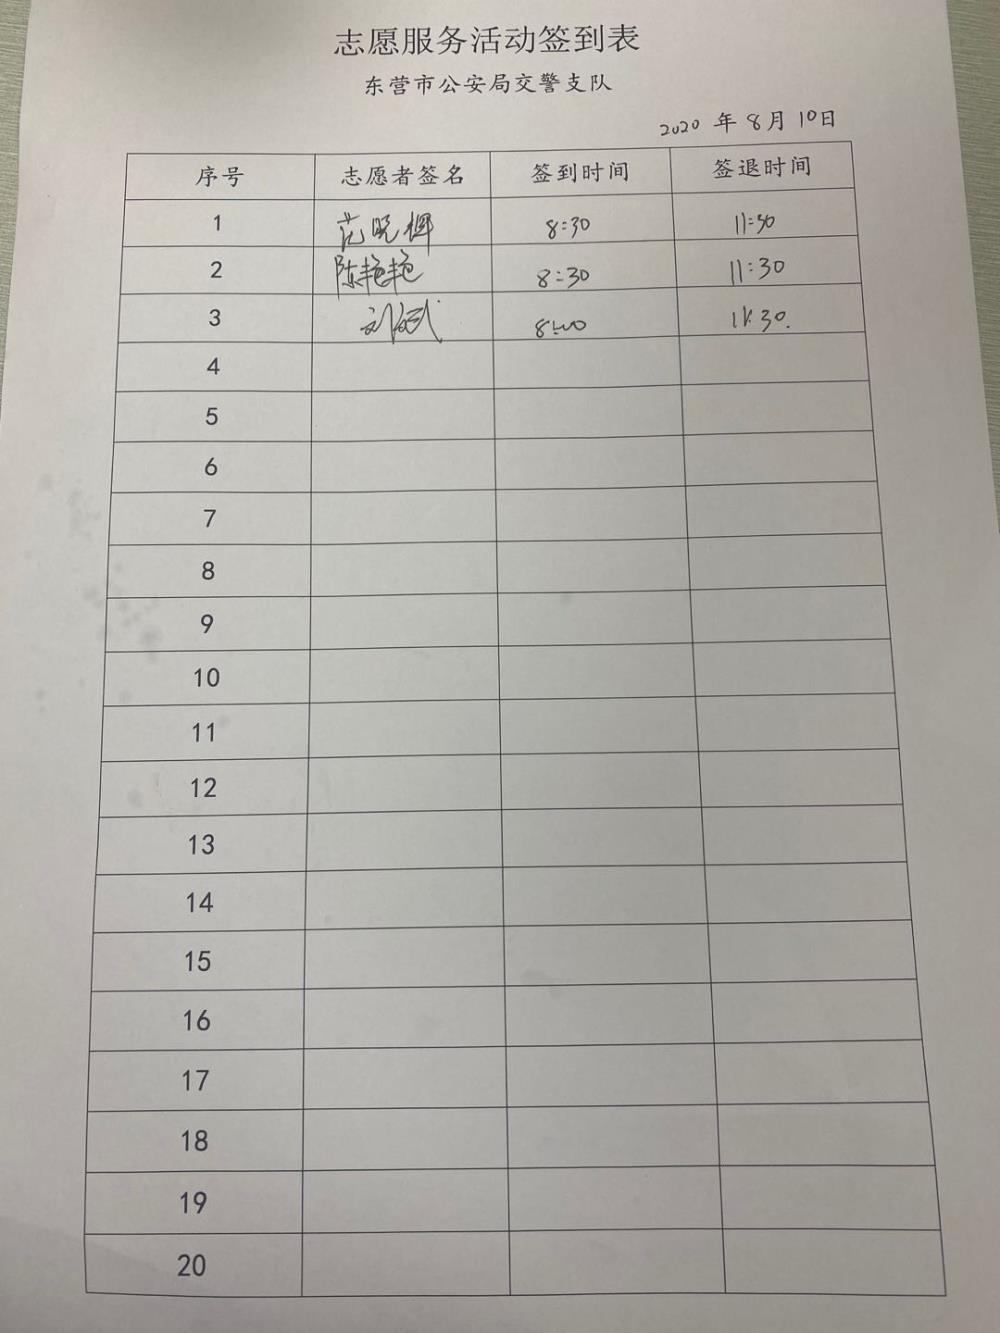 志愿服务活动签到表
东营市公安局交警支队
2020 年 8 月 10 日
序号 志愿者签名 签到时间 签退时间
1 范晓辉 8:30 11:30
2 陈艳艳 8:30 11:30
3 刘斌 8:00 11:30.
4
5
6
7
8
9
10
11
12
13
14
15
16
17
18
19
20